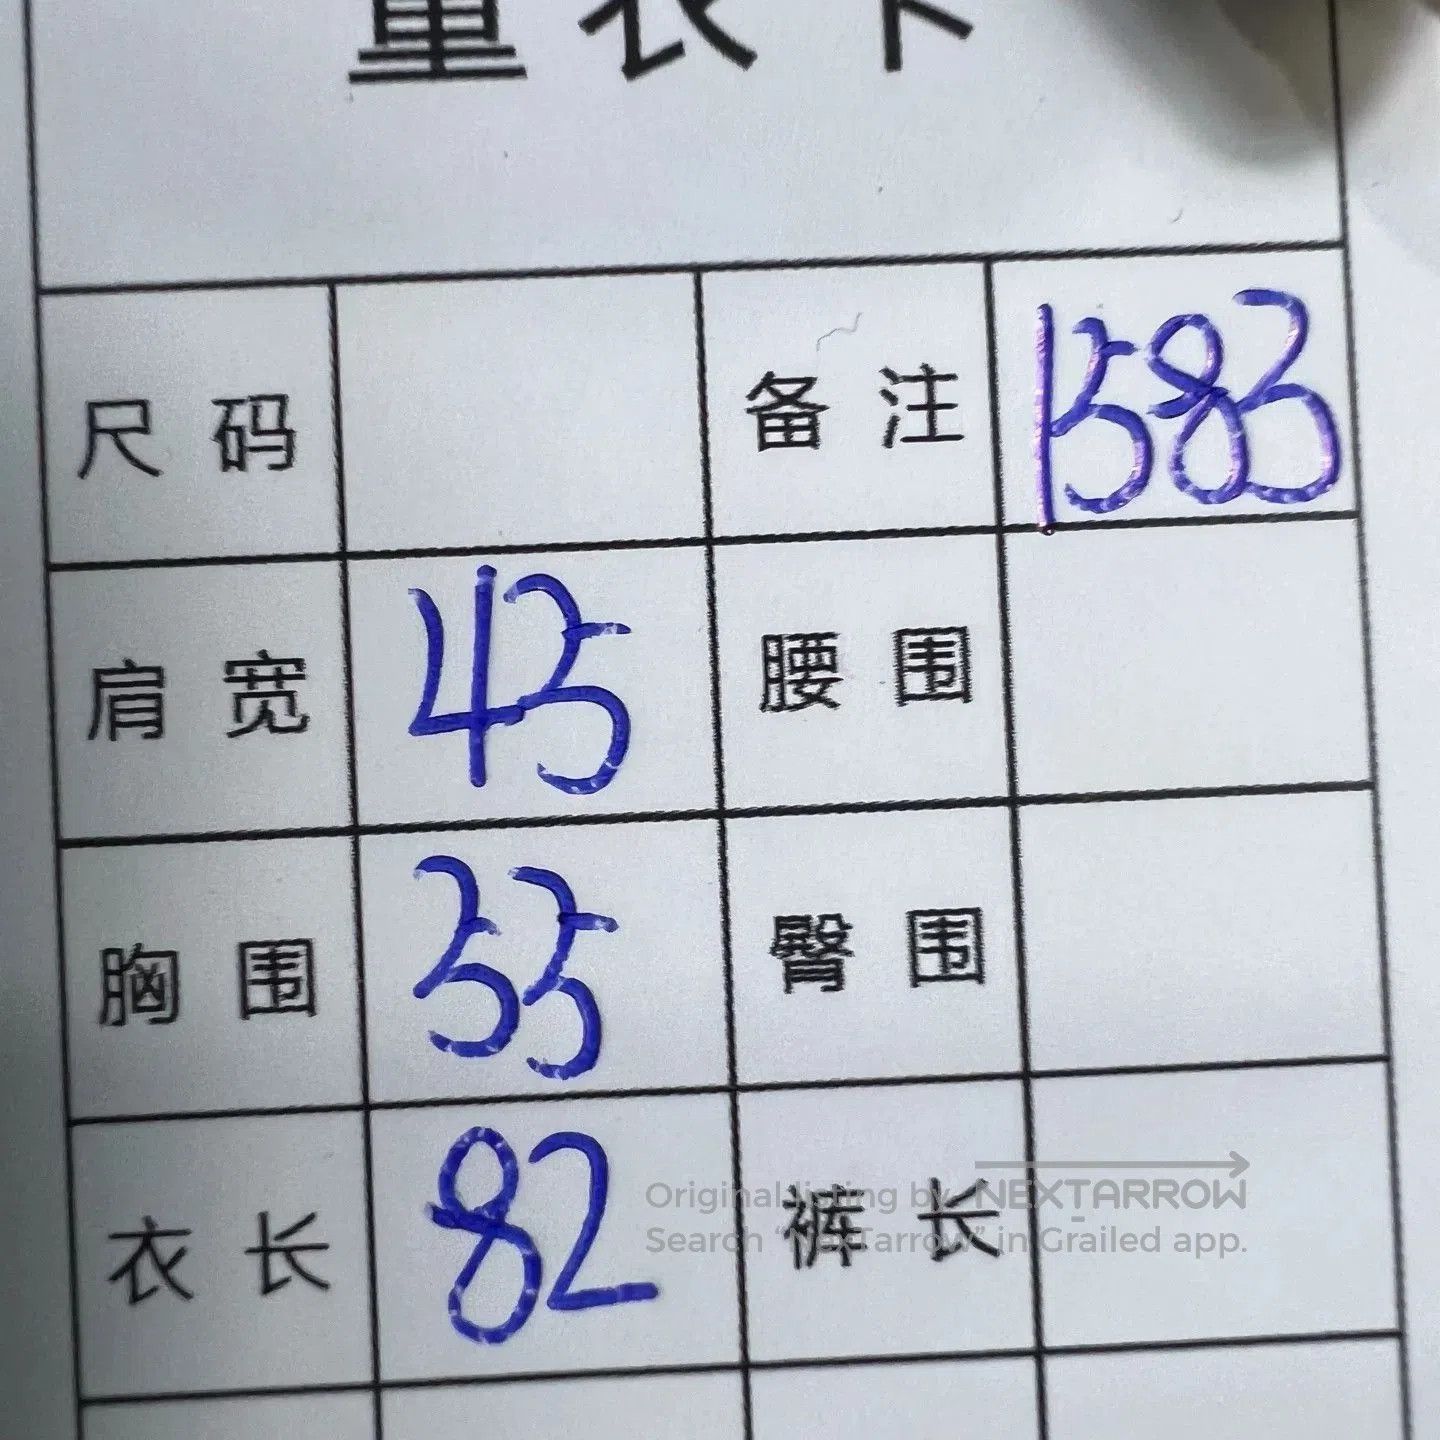 量衣卡
尺码 备注 1583
肩宽 45 腰围
胸围 55 臀围
衣长 82 裤长
Original listing by NEXTARROW
Search "NexTarrow" in Grailed app.